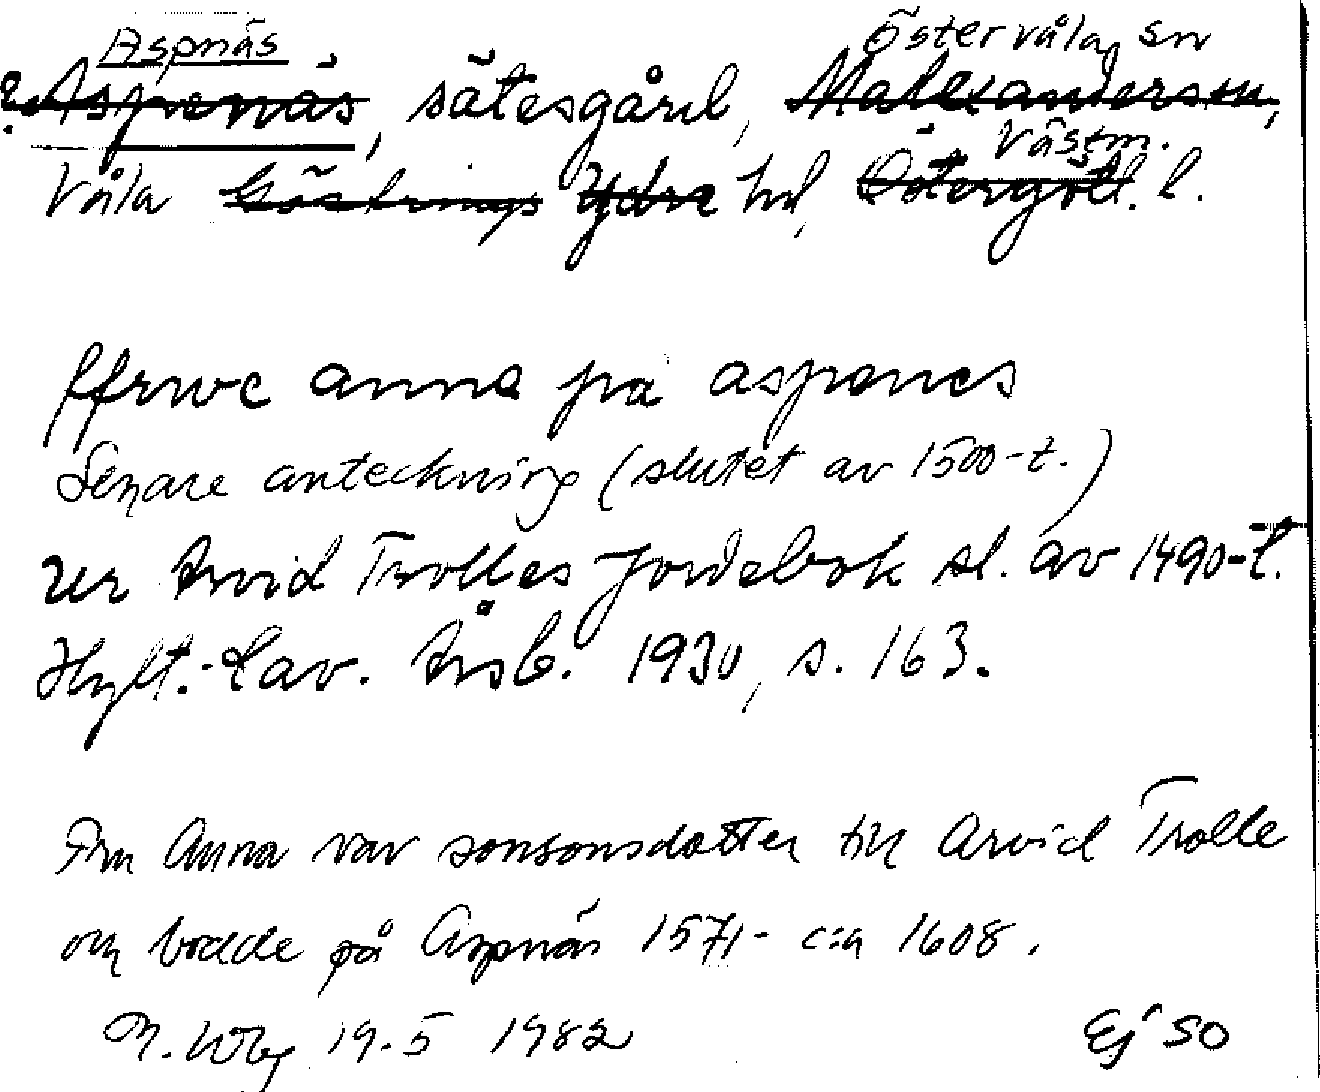 Aspnäs Östervåla sn
? Aspenäs, sätesgård, Malexanders sn,
Västm.
Våla Göstrings Ydre hd, Östergötl. l.
ffrwe anna pa aspenes
Senare anteckning (slutet av 1500-t.)
ur Arvid Trolles jordebok sl. av 1490-t.
Hylt.-Cav. Årsb. 1930, s. 163.
Fru Anna var sonsonsdotter till Arvid Trolle
och bodde på Aspnäs 1571- c:a 1608.
19.5 1982 Ej SO